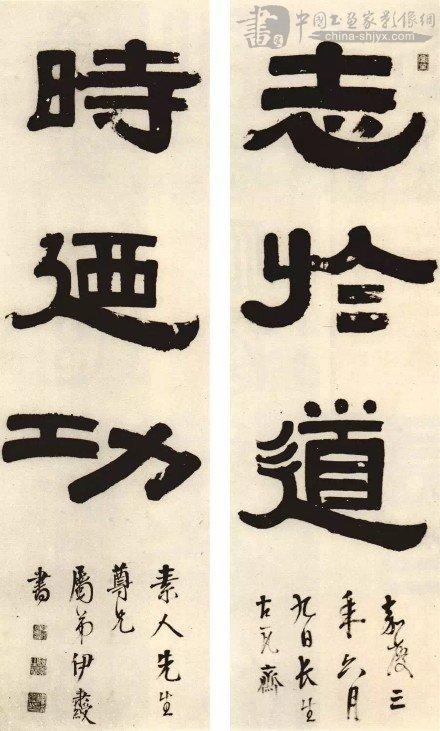 中國书画家影像網
china-shjyx.com
志於道
嘉慶三
年六月
九日長生
古瓦齋
時廼功
素人先生
尊兄
屬弟伊秉綬
書